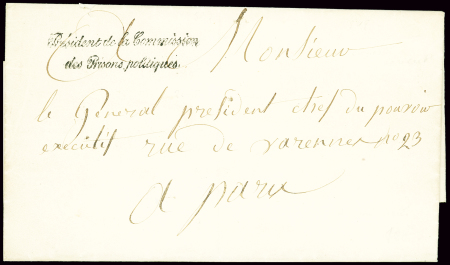 Président de la Commission
des Prisons politiques.
Monsieur
le General president chef du pouvoir
executif rue de varennes no 23
a paris